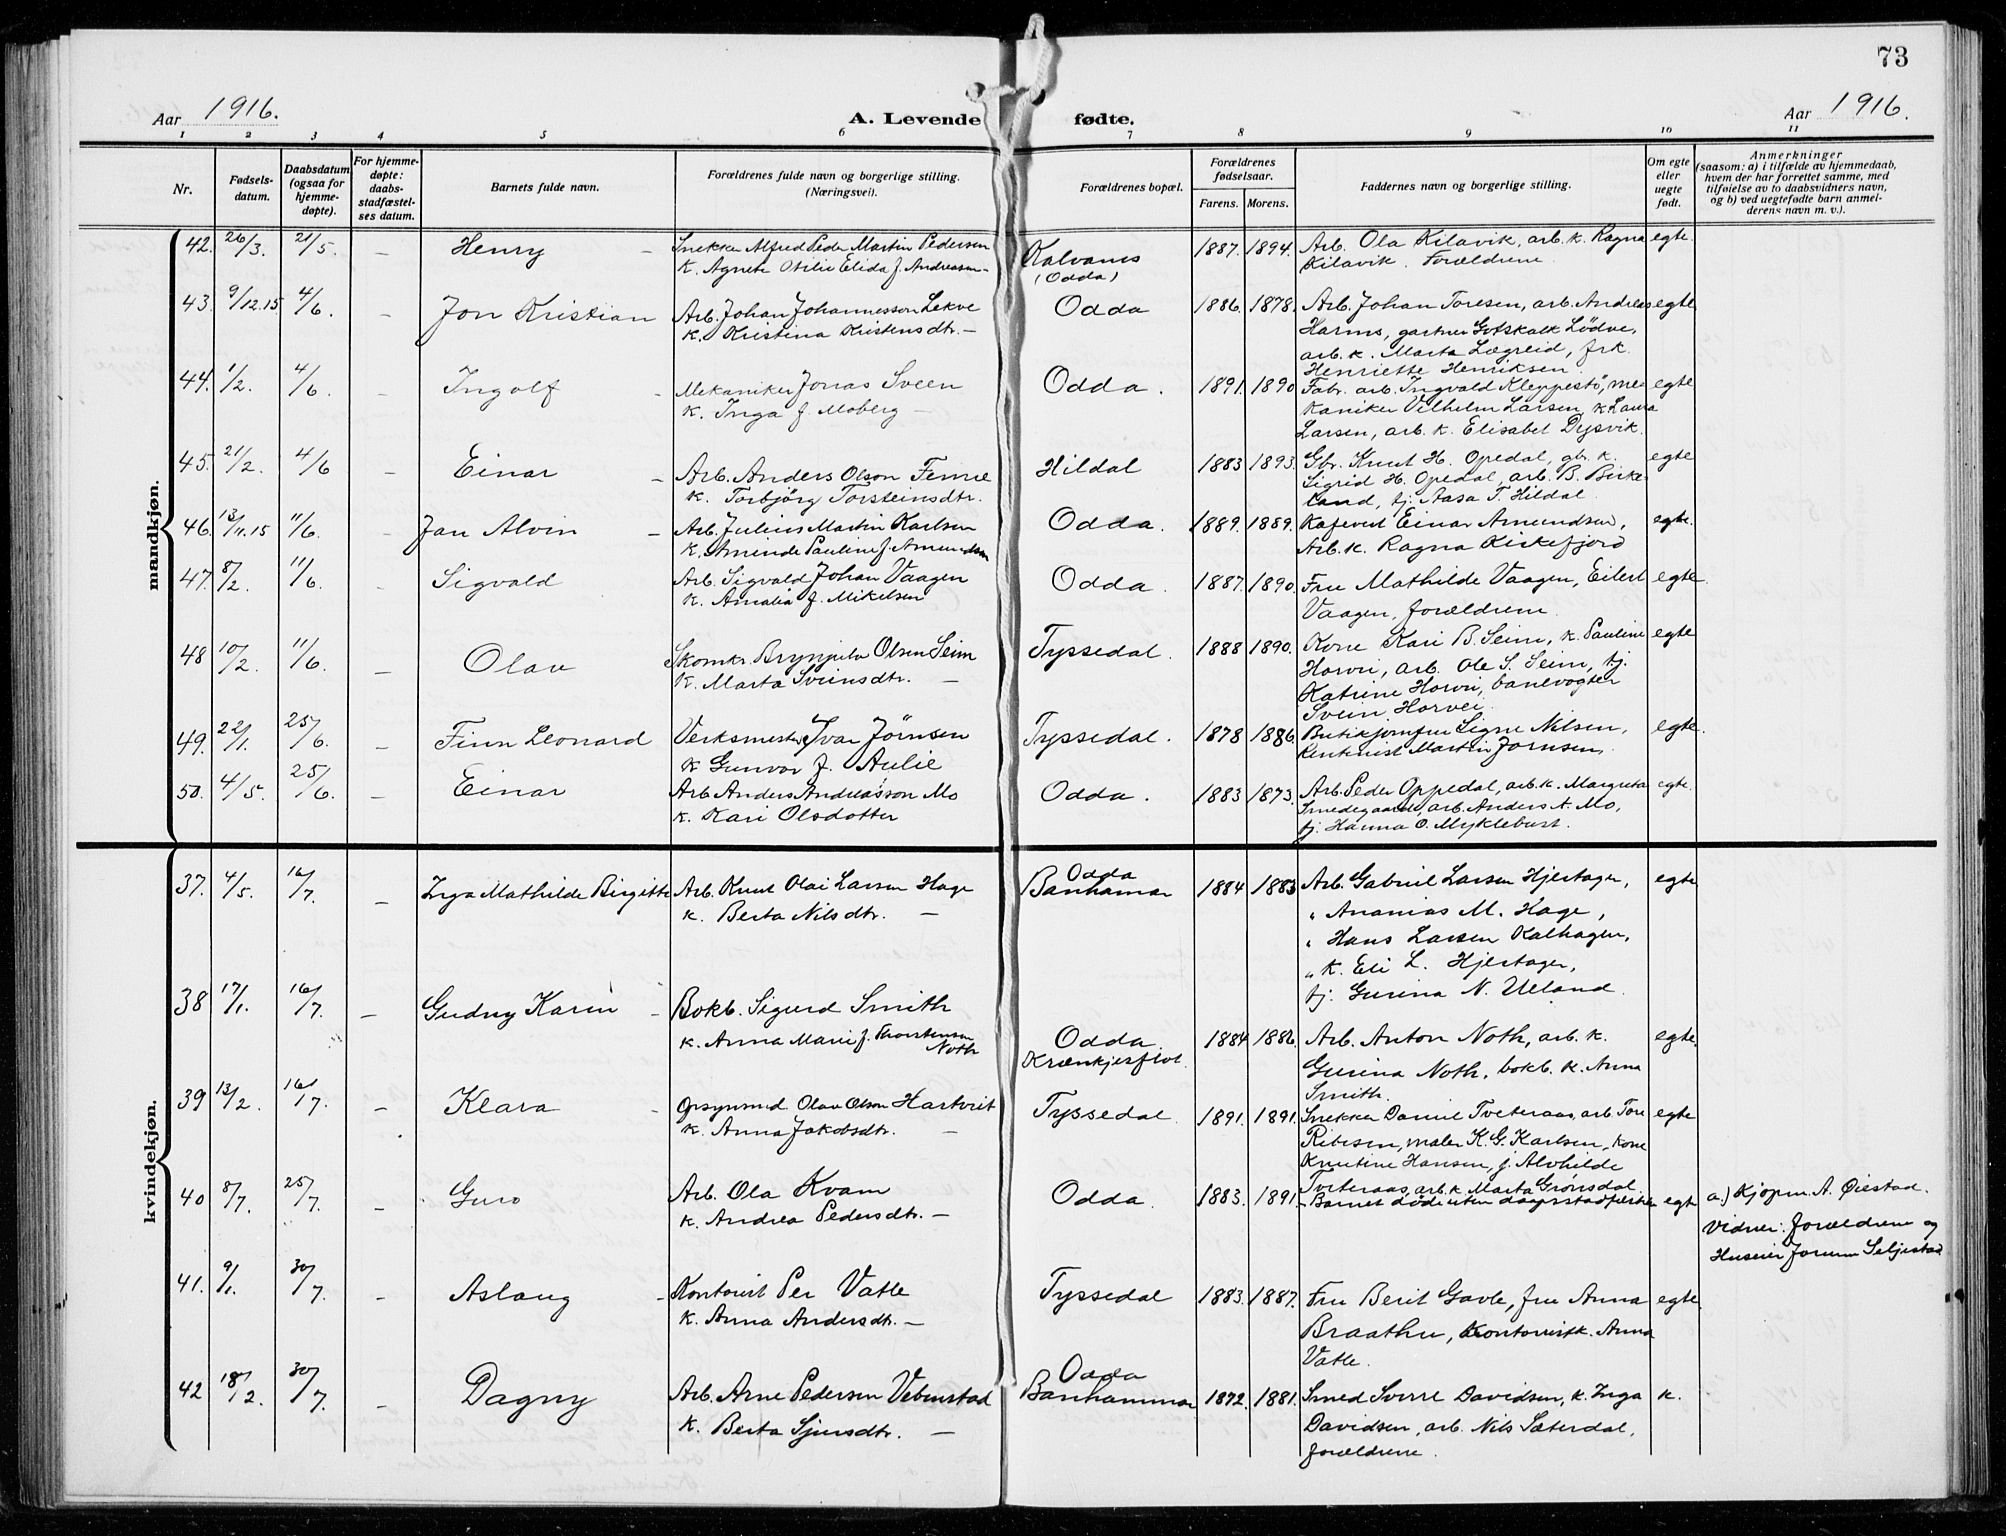 73
Aar 1916.
A. Levende fødte.
Aar 1916.
1 2 3 4 5 6 7 8 9 10 11
Nr.
Fødsels-
datum.
Daabsdatum
(ogsaa for
hjemme-
døpte).
For hjemme-
døpte:
daabs-
stadfæstel-
ses datum.
Barnets fulde navn.
Forældrenes fulde navn og borgerlige stilling.
(Næringsvei).
Forældrenes bopæl.
Forældrenes
fødselsaar.
Farens. Morens.
Faddernes navn og borgerlige stilling.
Om egte
eller
uegte
født.
Anmerkninger
(saasom: a) i tilfælde av hjemmedaab,
hvem der har forrettet samme, med
tilføielse av to daabsvidners navn,
og b) ved uegtefødte barn anmel-
derens navn m. v.).
mandkjøn.
42. 26/3. 21/5. – Henry –
Snekker Alfred Peder Martin Pedersen
k. Agnete Otilie Elida f. Andreasen –
Kalvanes
(Odda)
1887. 1894.
Arb. Ola Kilavik, arb. k. Ragna
Kilavik. Forældrene.
egte.
43. 9/12.15 4/6. – Jon Kristian
Arb. Johan Johannesson Lekve
k. Kristina Kristensdtr. –
Odda
1886. 1878.
Arb. Johan Toresen, arb. Andreas
Harms, gartner Gotskalk Lødve,
arb. k. Marta Lægreid, frk.
Henriette Henriksen.
egte
44. 1/2. 4/6. – Ingolf –
Mekaniker Jonas Sveen
k. Inga f. Moberg –
Odda.
1891. 1890
Fabr. arb. Ingvald Kleppestø, me-
kaniker Vilhelm Larsen, k. Laura
Larsen, arb. k. Elisabet Dysvik.
egte
45. 21/2. 4/6 – Einar –
Arb. Anders Olson Femre
k. Torbjørg Torsteinsdtr.
Hildal
1883 1893.
Gbr. Knut H. Opedal, gbr. k.
Sigrid H. Opedal, arb. B. Birke-
land, tj. Aasa T. Hildal.
egte
46. 13/11.15 11/6. – Jan Alvin –
Arb. Julius Martin Karlsen
k. Amende Pauline f. Amundsen
Odda.
1889. 1889.
Kafevert Einar Amundsen,
Arb. k. Ragna Kirkefjord
egte.
47. 8/2. 11/6. – Sigvald
Arb. Sigvald Johan Vaagen
k. Amalia f. Mikelsen
Odda.
1887. 1890.
Fru Mathilde Vaagen, Eilert
Vaagen, forældrene.
egte.
48 10/2. 11/6. – Olav
Skomkr. Brynjulv Olsen Seim
k. Marta Sveinsdtr. –
Tyssedal.
1888 1890.
Kone Kari B. Seim, k. Pauline
Horvei, arb. Ole S. Seim, tj.
Katrine Horvei, banevogter
Svein Horvei.
egte
49. 22/1. 25/6. – Finn Leonard
Verksmester Ivar Jørnsen
k Gunvor f. Aulie
Tyssedal.
1878 1886.
Butikjomfru Signe Nilsen,
Kontorist Martin Jørnsen.
egte.
50. 4/5. 25/6. – Einar
Arb. Anders Andreasson Mo
k. Kari Olsdotter
Odda.
1883 1873.
Arb. Peder Oppedal, arb. k. Margreta
Smedegaard, arb. Anders A. Mo,
tj. Hanna O. Myklebust.
egte.
kvindekjøn.
37. 4/5. 16/7. – Inga Mathilde Birgitte
Arb. Knut Olai Larsen Hage
k. Berta Nilsdtr. –
Odda
Banhamar
1884 1883
Arb. Gabriel Larsen Hjertager,
" Ananias M. Hage,
" Hans Larsen Kalhagen,
" k. Eli L. Hjertager,
tj. Gurina N. Ueland.
egte
38 17/1. 16/7. – Gudny Karin –
Bokb. Sigurd Smith
k. Anna Marie f. Thorstensen
Noth
Odda
1884 1886.
Arb. Anton Noth, arb. k.
Gurina Noth, bokb. k. Anna
Smith.
egte.
39 13/2. 16/7. – Klara –
Opsynsmd Olav Olson Hartveit
k. Anna Jakobsdtr. –
Tyssedal.
1891. 1891.
Snekker Daniel Tveteraas, arb. Tore
Ribesen, maler K. G. Karlsen, kone
Knutine Hansen, f. Alvhilde
Tveteraas, arb. k. Marta Grønsdal.
egte
40 8/7. 25/7. – Guro
Arb. Ola Kvam
k. Andrea Pedersdtr. –
Odda.
1883. 1891.
Barnet døde uten daapsstadfæstelse
egte
a.) Kjøpm. A. Øiestad.
Vidner: forældrene og
Huseier Jorunn Seljestad
41. 9/1. 30/7. – Aslaug –
Kontorist Per Vatle
k. Anna Andersdtr. –
Tyssedal
1883. 1887.
Fru Berit Gavle, fru Anna
Braathen, kontoristk. Anna
Vatle.
egte.
42 18/2. 30/7. – Dagny
Arb. Arne Pedersen Vebenstad
k. Berta Sjursdtr. –
Odda
Banhammar
1872. 1881.
Smed Sverre Davidsen, k. Inga
Davidsen, arb. Nils Sæterdal,
forældrene.
k.